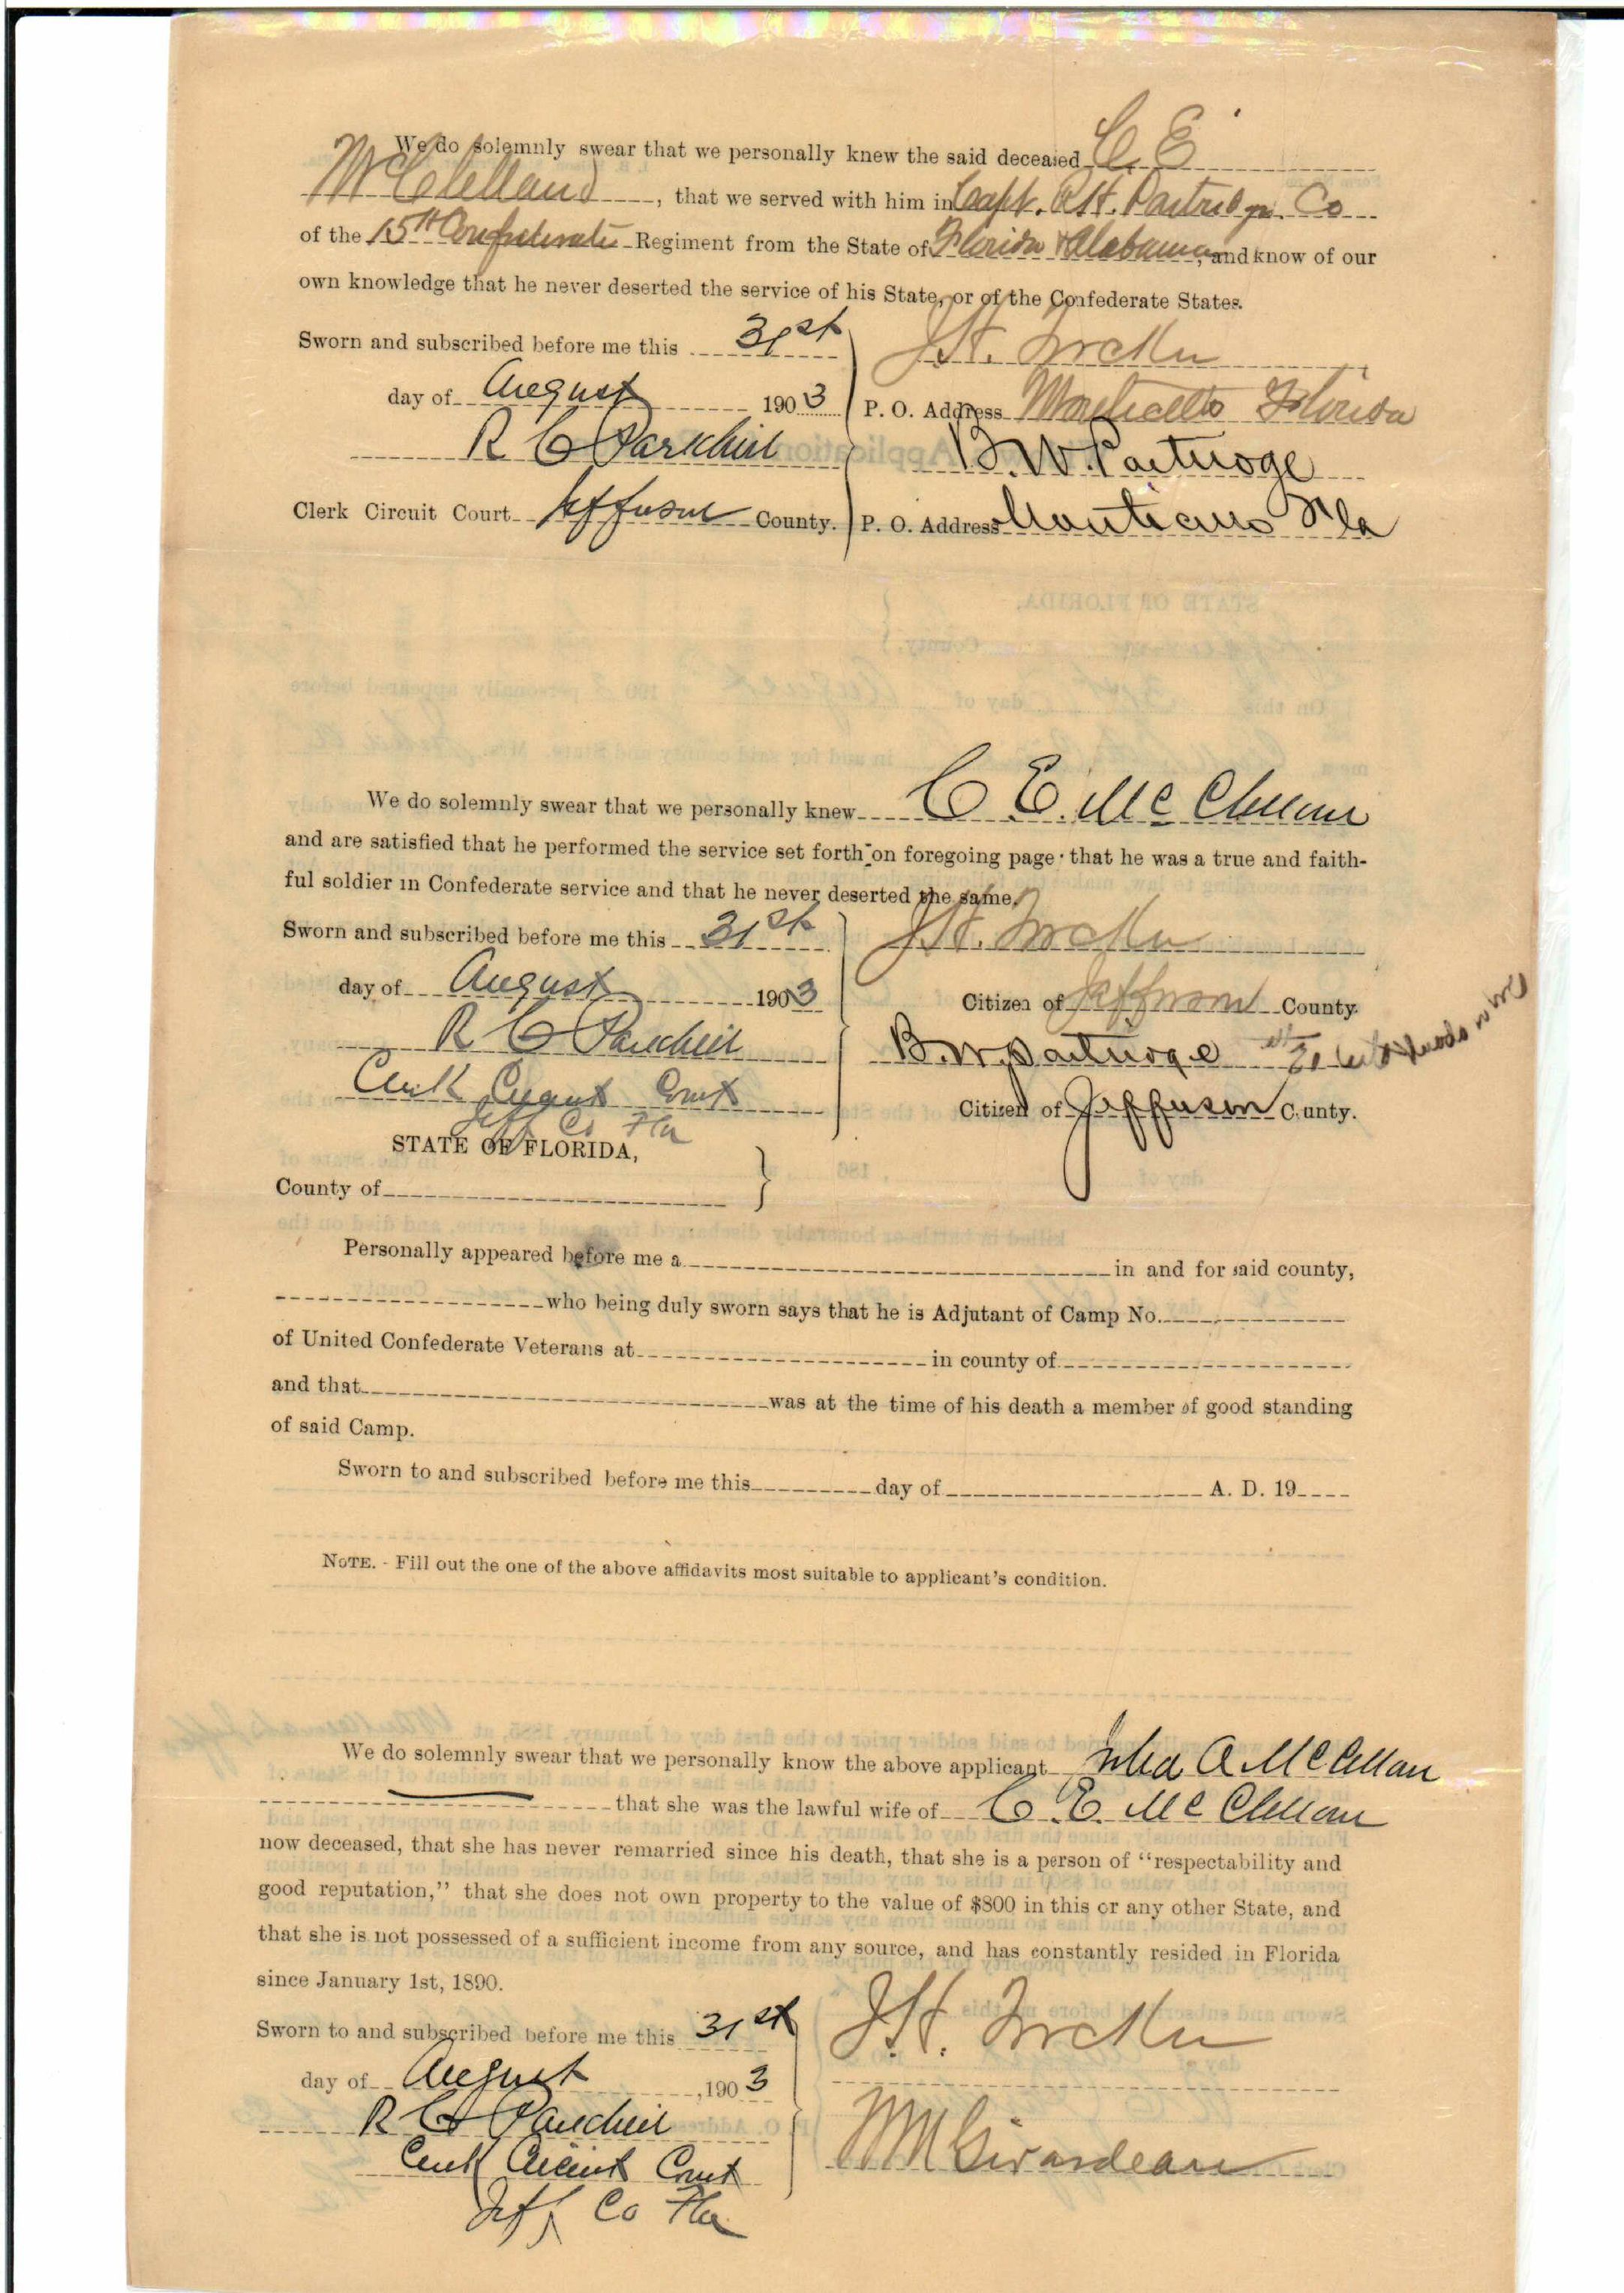 We do solemnly swear that we personally knew the said deceased C. E
McClelland, that we served with him in Capt. R.H. Partridge Co
of the 15th Confederate Regiment from the State of Florida & Alabama, and know of our
own knowledge that he never deserted the service of his State, or of the Confederate States.
Sworn and subscribed before me this 31st
J.H.
day of August 1903
P. O. Address Monticello Florida
R C Parkhill
B. W. Partridge
Clerk Circuit Court Jefferson County.
P. O. Address Monticello Fla
We do solemnly swear that we personally knew C E. McClellan
and are satisfied that he performed the service set forth on foregoing page; that he was a true and faith-
ful soldier in Confederate service and that he never deserted the same.
Sworn and subscribed before me this 31st
J.H.
day of August 1903
Citizen of Jefferson County.
R C Parkhill
B. W. Partridge
Clerk Circuit Court
Citizen of Jefferson County.
Jeff Co Fla
STATE OF FLORIDA,
County of
Personally appeared before me a in and for said county,
who being duly sworn says that he is Adjutant of Camp No.
of United Confederate Veterans at in county of
and that was at the time of his death a member of good standing
of said Camp.
Sworn to and subscribed before me this day of A. D. 19
NOTE. - Fill out the one of the above affidavits most suitable to applicant's condition.
We do solemnly swear that we personally know the above applicant Julia A McClellan
that she was the lawful wife of C. E. McClellan
now deceased, that she has never remarried since his death, that she is a person of "respectability and
good reputation," that she does not own property to the value of $800 in this or any other State, and
that she is not possessed of a sufficient income from any source, and has constantly resided in Florida
since January 1st, 1890.
Sworn to and subscribed before me this 31st
J.H.
day of August, 1903
R C Parkhill
Clerk Circuit Court
W M Girardeau
Jeff Co Fla